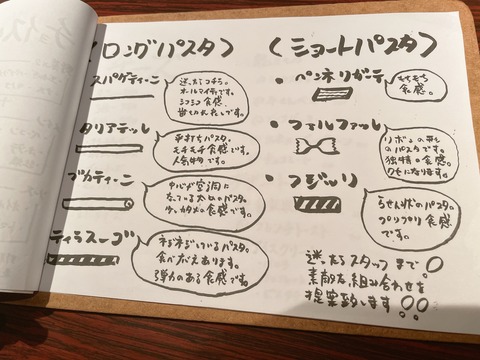 〈ロングパスタ〉
スパゲティーニ
迷ったらコチラ。
オールマイティです。
シコシコ食感
タリアテッレ
平打ちパスタ。
モチモチ食感です。
人気物です。
ブカティーニ
中心が空洞に
なっている太めのパスタ。
少々カタメの食感です。
ねじねじしているパスタ。
食べごたえあります。
弾力のある食感です。
〈ショートパスタ〉
・ペンネリガーテ
もちもち
食感。
・ファルファッレ
リボンの形
のパスタです。
独特の食感。
クセになります。
・フジッリ
らせん状のパスタ。
プリプリ食感
です。
迷ったらスタッフまで
素敵な組み合わせを
提案致します